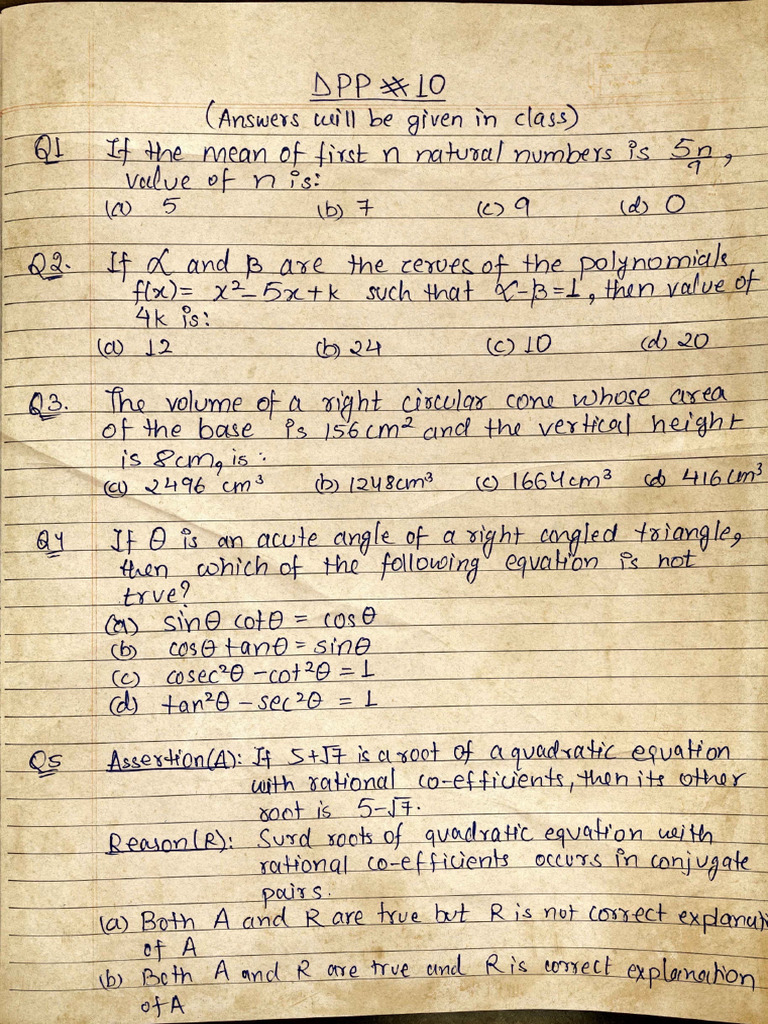 DPP # 10
(Answers will be given in class)
Q1 If the mean of first n natural numbers is 5n/9,
value of n is:
(a) 5 (b) 7 (c) 9 (d) 0
Q2. If α and β are the zeroes of the polynomials
f(x) = x² - 5x + k such that α-β = 1, then value of
4k is:
(a) 12 (b) 24 (c) 10 (d) 20
Q3. The volume of a right circular cone whose area
of the base is 156 cm² and the vertical height
is 8cm, is :
(a) 2496 cm³ (b) 1248cm³ (c) 1664cm³ (d) 416 cm³
Q4 If θ is an acute angle of a right angled triangle,
then which of the following equation is not
true?
(a) sinθ cotθ = cosθ
(b) cosθ tanθ = sinθ
(c) cosec²θ - cot²θ = 1
(d) tan²θ - sec²θ = 1
Q5 Assertion(A): If 5+√7 is a root of a quadratic equation
with rational co-efficients, then its other
root is 5-√7.
Reason(R): Surd roots of quadratic equation with
rational co-efficients occurs in conjugate
pairs.
(a) Both A and R are true but R is not correct explanati
of A
(b) Both A and R are true and R is correct explanation
of A